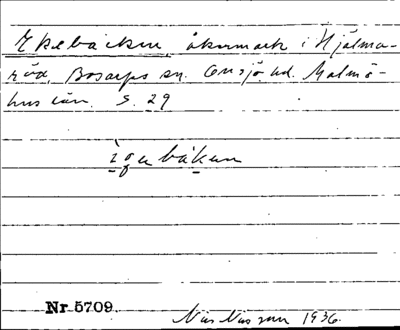 Ekebäcken, åkermark i Hjälma-
röd, Bosarps sn. Onsjö hd. Malmö-
hus län. S. 29
ìgabákan
Nr 5709.
Nils Nilsson 1936.